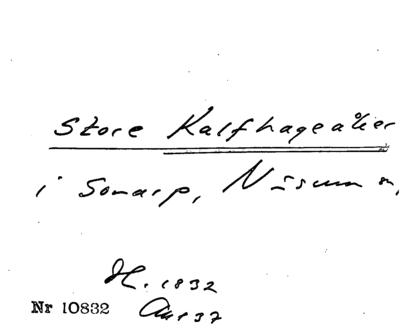 Store Kalfhageåker
i Sonarp, Näsum sn,
H. 1832
Nr 10832